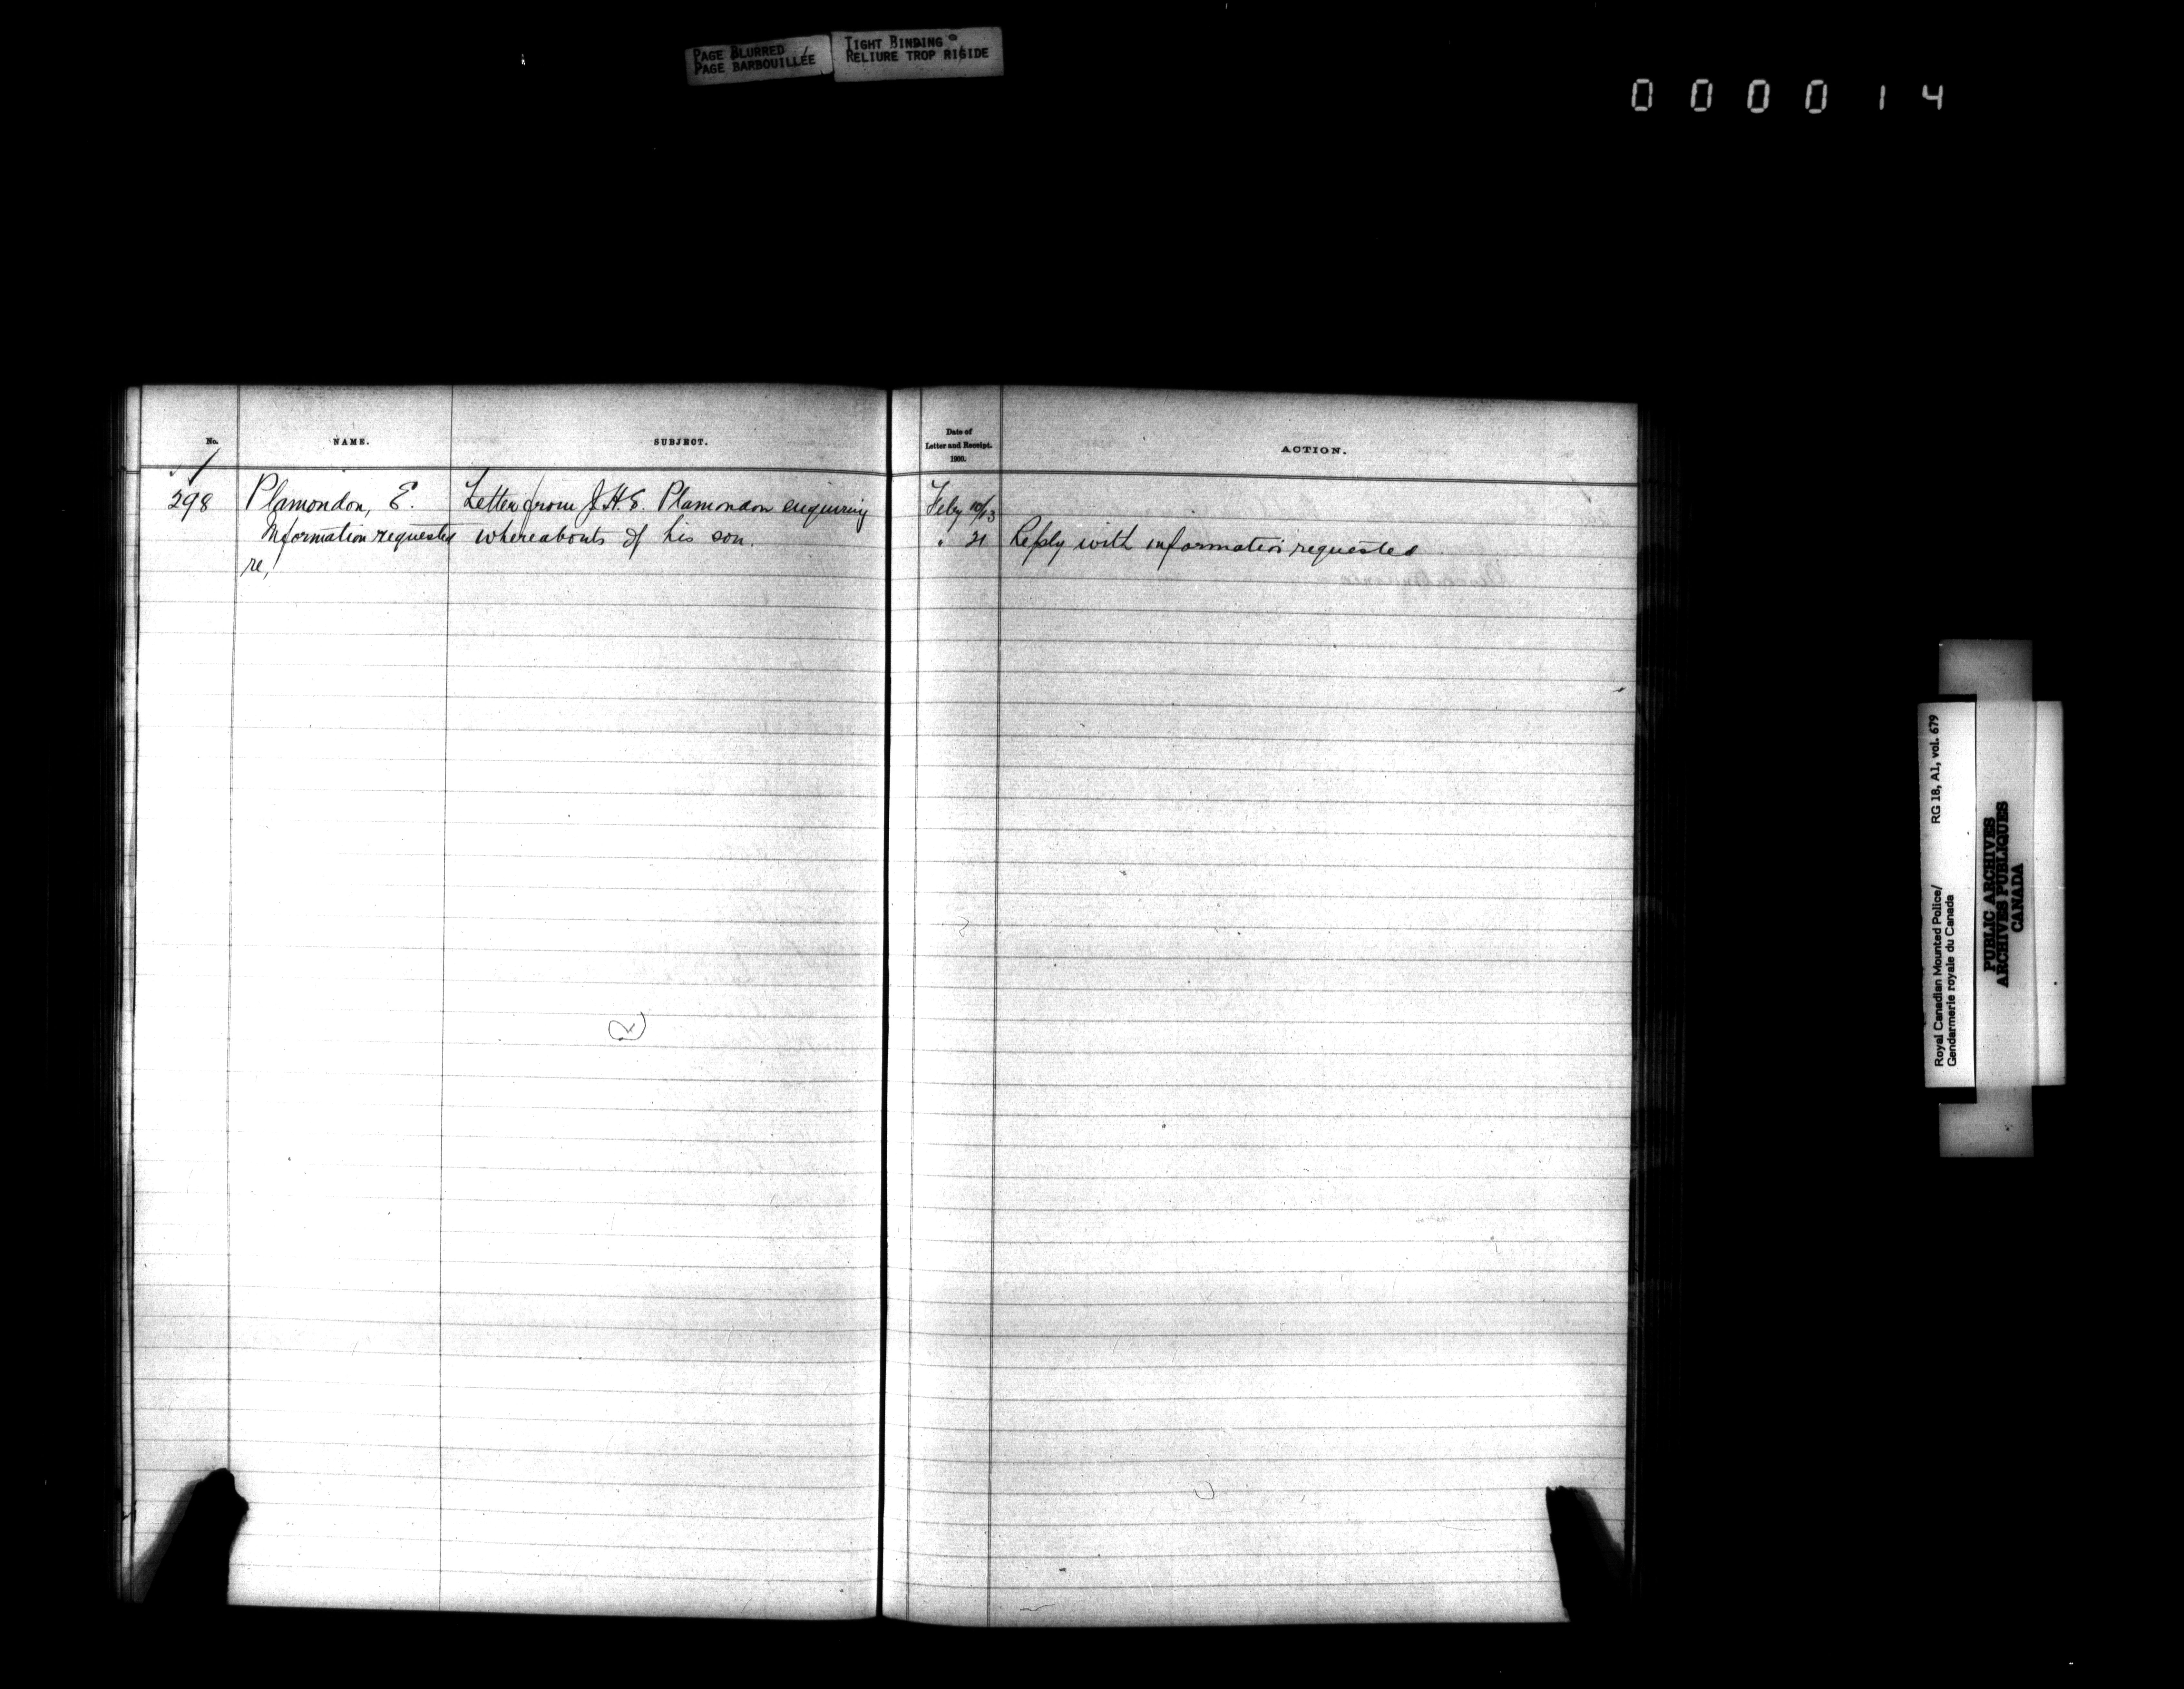 PAGE BLURRED
PAGE BARBOUILLÉE
TIGHT BINDING
RELIURE TROP RIGIDE
000014
No.
NAME.
SUBJECT.
Date of
Letter and Receipt.
1900.
ACTION.
298 Plamondon, E. Letter from J.H.E. Plamondon enquiring Feby 10/13
Information requested whereabouts of his son. " 21 Reply with information requested
re,
Royal Canadian Mounted Police/ RG 18, A1, vol. 679
Gendarmerie royale du Canada
PUBLIC ARCHIVES
ARCHIVES PUBLIQUES
CANADA